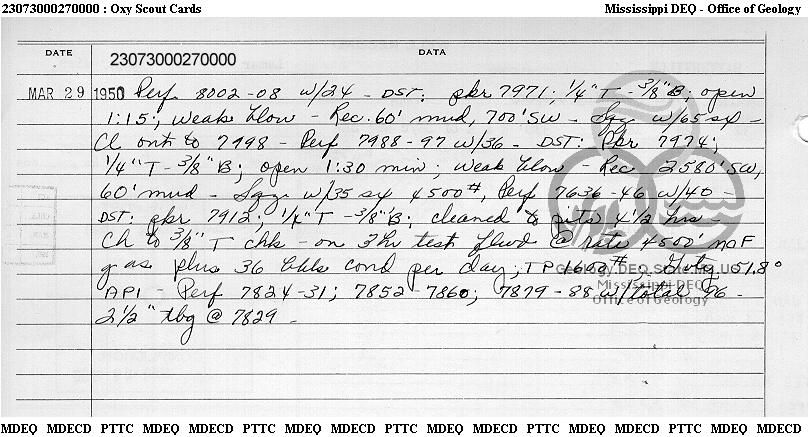 23073000270000 : Oxy Scout Cards Mississippi DEQ - Office of Geology
DATE DATA
23073000270000
MAR 29 1950 Perf 8002-08 w/24 - DST: pkr 7971; 1/4" T - 3/8" B; open
1:15; weak blow - Rec. 60' mud, 700' SW - Sqz w/65 sx -
Cl out to 7998 - Perf 7988-97 w/36 - DST: Pkr 7974;
1/4" T - 3/8" B; open 1:30 min; weak blow - Rec 2580' SW,
60' mud - Sqz w/35 sx 4500#, Perf 7636-46 w/40 -
DST: pkr 7912; 1/4" T - 3/8" B; cleaned to pits 4 1/2 hrs -
Ch to 3/8" T chk - on 3 hr test flwd @ rate 4500' mcf
gas plus 36 bbls cond per day; TP 1600#; Gvty 51.8°
API - Perf 7824-31; 7852-7860; 7879-88 w/total 96 -
2 1/2" tbg @ 7829 -
Geology.DEQ.State.MS.US
Mississippi DEQ
Office of Geology
MDEQ MDECD PTTC MDEQ MDECD PTTC MDEQ MDECD PTTC MDEQ MDECD PTTC MDEQ MDECD PTTC MDEQ MDECD